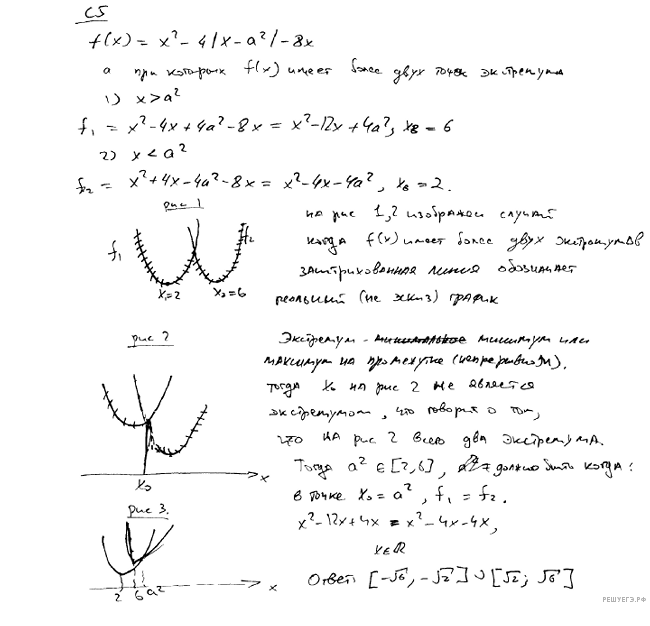 C5
f(x) = x² - 4|x - a²| - 8x
a при которых f(x) имеет более двух точек экстремума
1) x > a²
f₁ = x² - 4x + 4a² - 8x = x² - 12x + 4a², xв = 6
2) x < a²
f₂ = x² + 4x - 4a² - 8x = x² - 4x - 4a², xв = 2.
рис 1
f₁
f₂
x₁=2
x₂=6
на рис 1,2 изображен случай
когда f(x) имеет более двух экстремумов
заштрихованная линия обозначает
реальный (не эскиз) график
рис 2
x₀
x
Экстремум - минимум или
максимум на промежутке (непрерывном).
тогда x₀ на рис 2 не является
экстремумом, что говорит о том,
что на рис 2 всего два экстремума.
Тогда a² ∈ [2,6], должно быть когда:
в точке x₀ = a², f₁ = f₂.
x² - 12x + 4x = x² - 4x - 4x,
x ∈ R
рис 3.
2
6
a²
x
Ответ [-√6, -√2] ∪ [√2; √6]
РЕШУЕГЭ.РФ